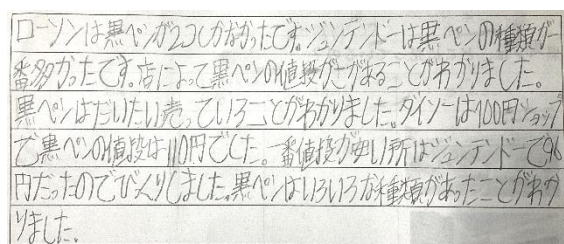 ローソンは黒ペンが2コしかなかったです。ジュンテンドーは黒ペンの種類が一
番多かったです。店によって黒ペンの値段がさがあることがわかりました。
黒ペンはだいたい売っていることがわかりました。ダイソーは100円ショップ
で黒ペンの値段は110円でした。一番値段が安い所はジュンテンドーで96
円だったのでびくりしました。黒ペンはいろいろな種類があったことがわか
りました。